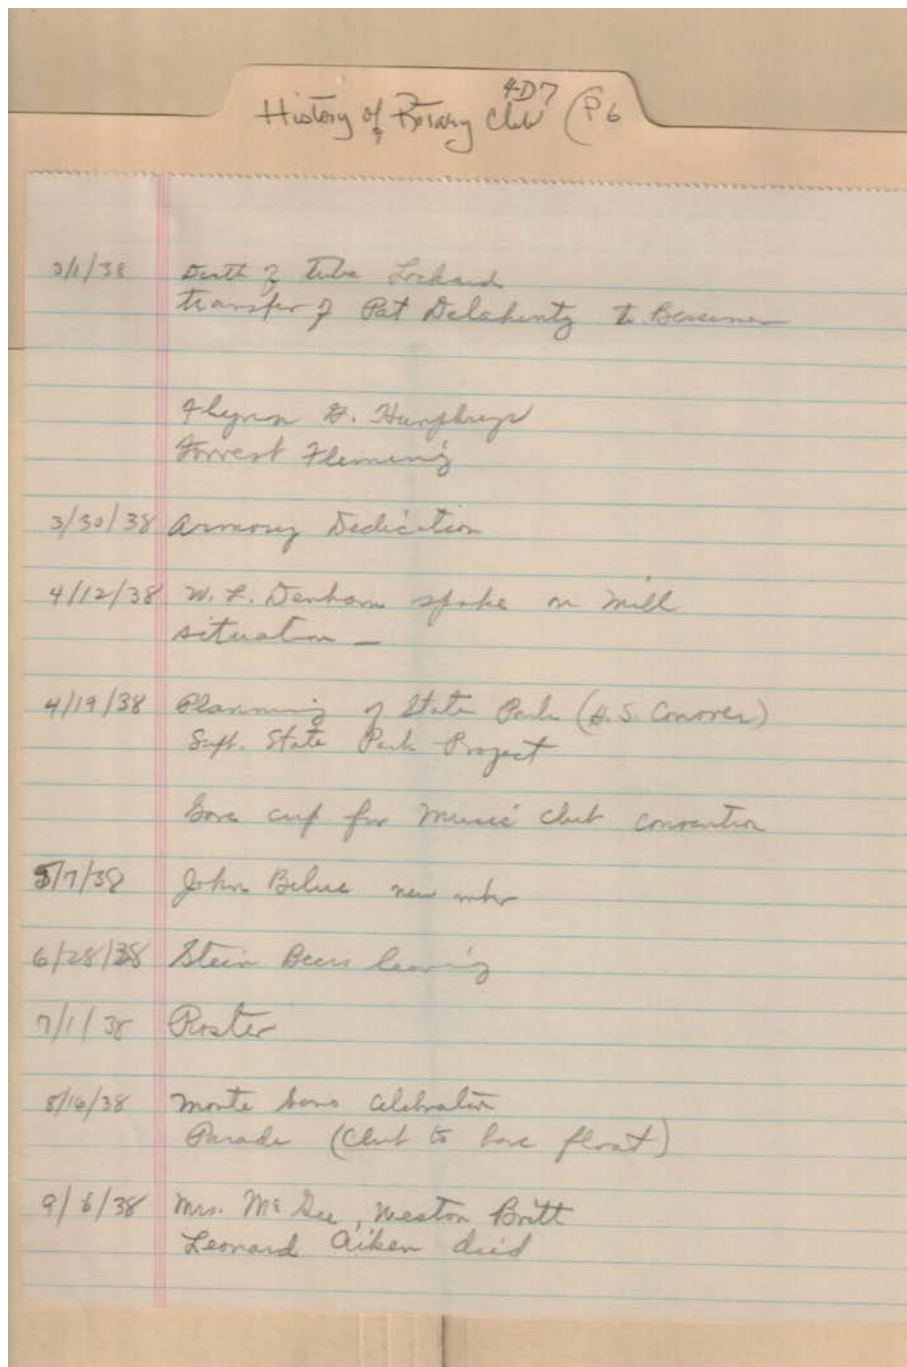 4-D7
History of Rotary Club (P6
3/1/38 Death of Lockard
transfer of Pat Delahenty to Bessemer
G. Humphreys
Forrest Fleming
3/30/38 Armory Dedication
4/12/38 W. L. Denham spoke on mill
situation —
4/19/38 Planning of State Park (G. S. Conover)
Supt. State Park Project
Gave cup for Music Club convention
5/7/38 John Belue new mbr
6/28/38 Stein Beers leaving
7/1/38 Roster
8/16/38 Monte Sano Celebration
Parade (Club to have float)
9/6/38 Mrs. McGee, Weston Britt
Leonard Aiken died